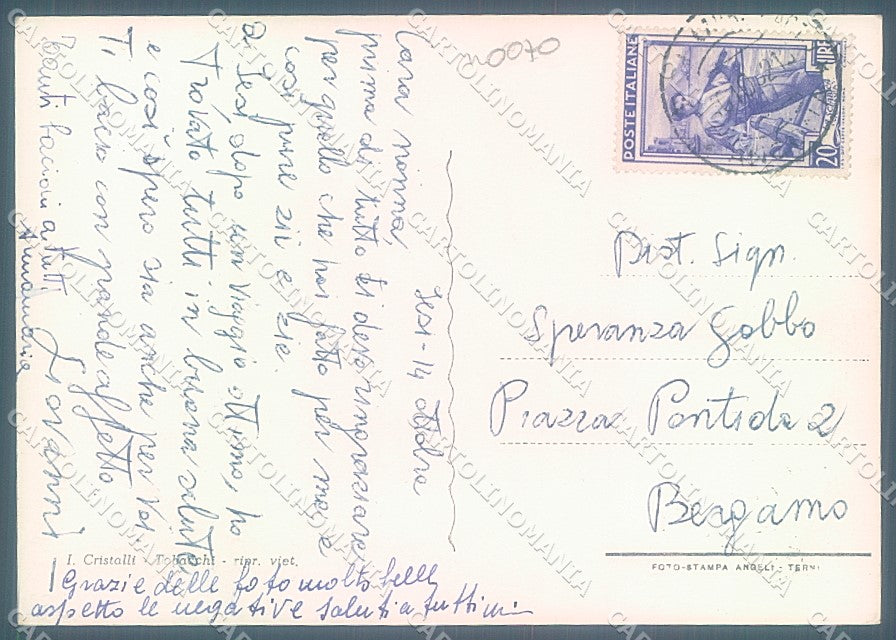 Jesi - 14 Ottobre
Cara nonna,
prima di tutto ti devo ringraziare
per quello che hai fatto per me e
così pure zii e zie.
Di Jesi, dopo un viaggio ottimo, ho
trovato tutti in buona salute
e così spero sia anche per Voi
Ti bacio con grande affetto
Giovanni
Tanti bacioni a tutti
Annamaria
Grazie delle foto molto belle
aspetto le negative saluti a tutti
I. Cristalli - Tobacchi - ripr. viet.
0700
POSTE ITALIANE
LIRE
20
Dist. Sign.
Speranza Gobbo
Piazza Pontida 2
Bergamo
FOTO-STAMPA ANGELI - TERNI
CARTOLINOMANIA